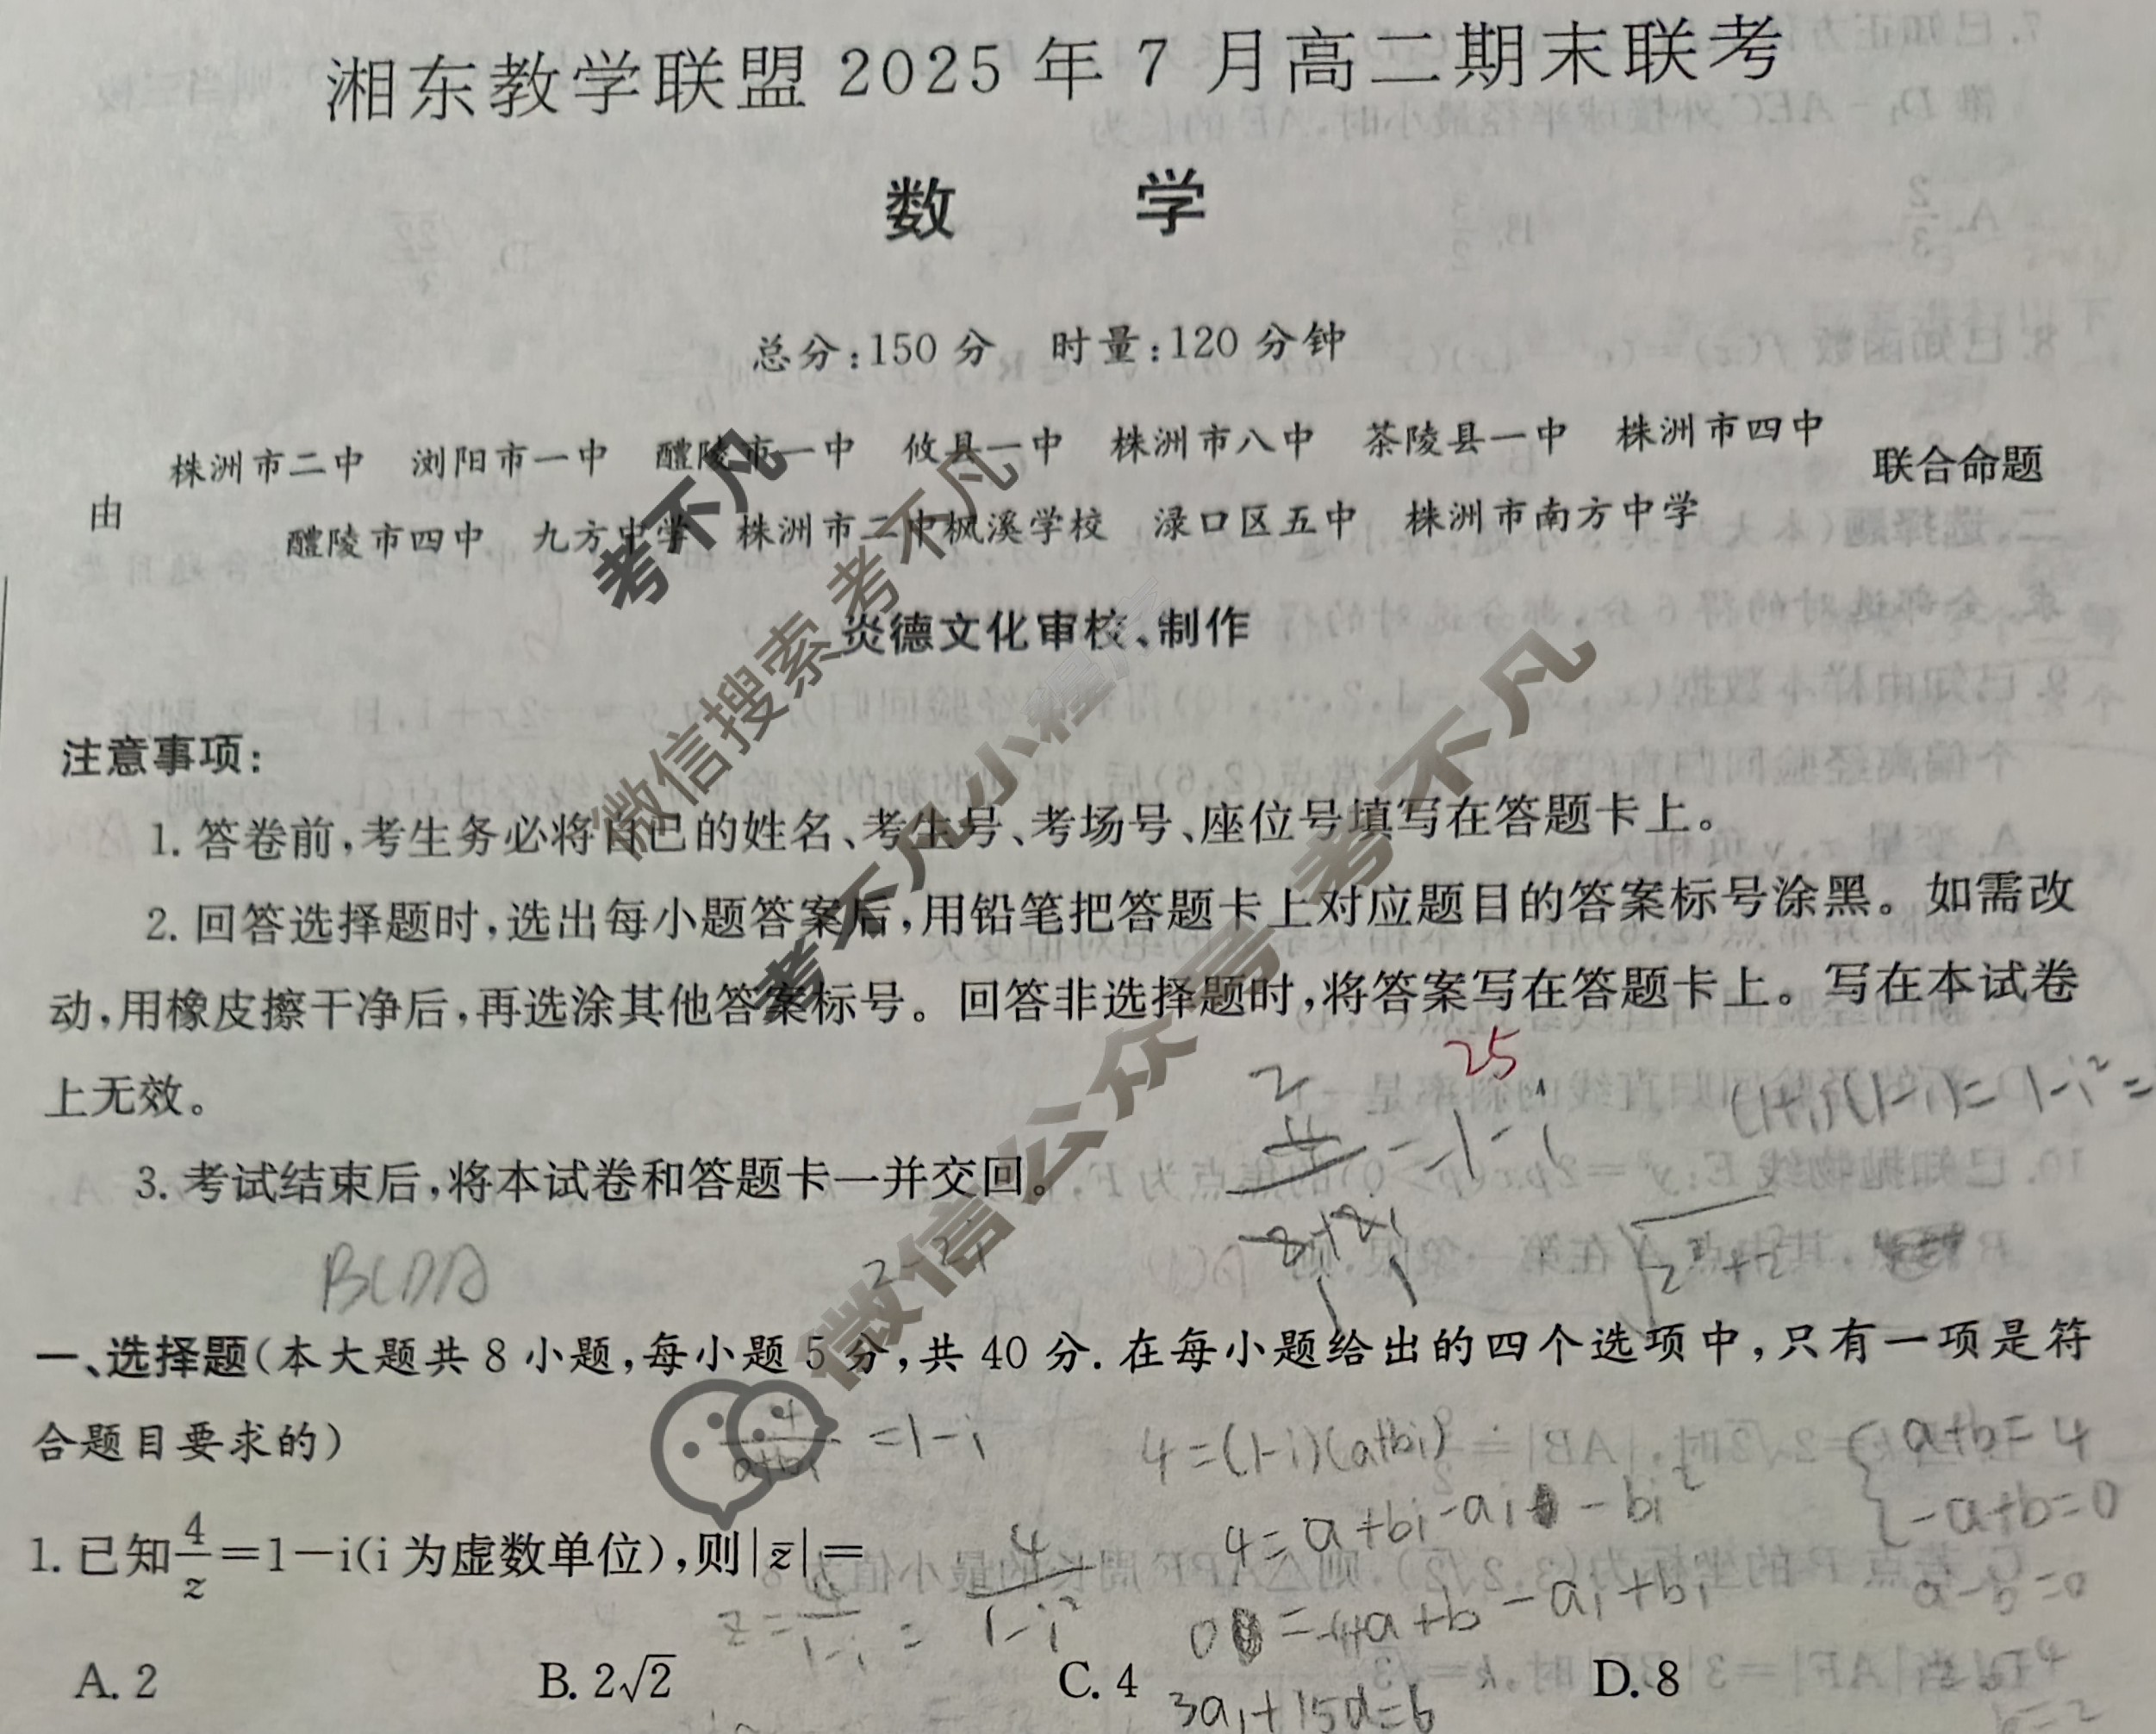 湘东教学联盟 2025 年 7 月高二期末联考
数 学
总分:150 分 时量:120 分钟
株洲市二中 浏阳市一中 醴陵市一中 攸县一中 株洲市八中 茶陵县一中 株洲市四中
由
联合命题
醴陵市四中 九方中学 株洲市二中枫溪学校 渌口区五中 株洲市南方中学
炎德文化审校、制作
考不凡
微信搜索 考不凡
考不凡小程序
微信公众号 考不凡
注意事项:
1. 答卷前,考生务必将自己的姓名、考生号、考场号、座位号填写在答题卡上。
2. 回答选择题时,选出每小题答案后,用铅笔把答题卡上对应题目的答案标号涂黑。如需改
动,用橡皮擦干净后,再选涂其他答案标号。回答非选择题时,将答案写在答题卡上。写在本试卷
上无效。
25
(1+i)(1-i)=1-i²=
3. 考试结束后,将本试卷和答题卡一并交回。
2-2i
一、选择题(本大题共 8 小题,每小题 5 分,共 40 分. 在每小题给出的四个选项中,只有一项是符
合题目要求的)
4/(a+bi) =1-i
4=(1-i)(a+bi)
a+b=4
-a+b=0
4=a+bi-ai-bi²
a-b=0
1. 已知4/z=1-i(i 为虚数单位),则|z̄|=
z=4/(1-i)=4/(1-i²)
A. 2 B. 2√2 C. 4 D. 8
3a₁+15d=6
b=2